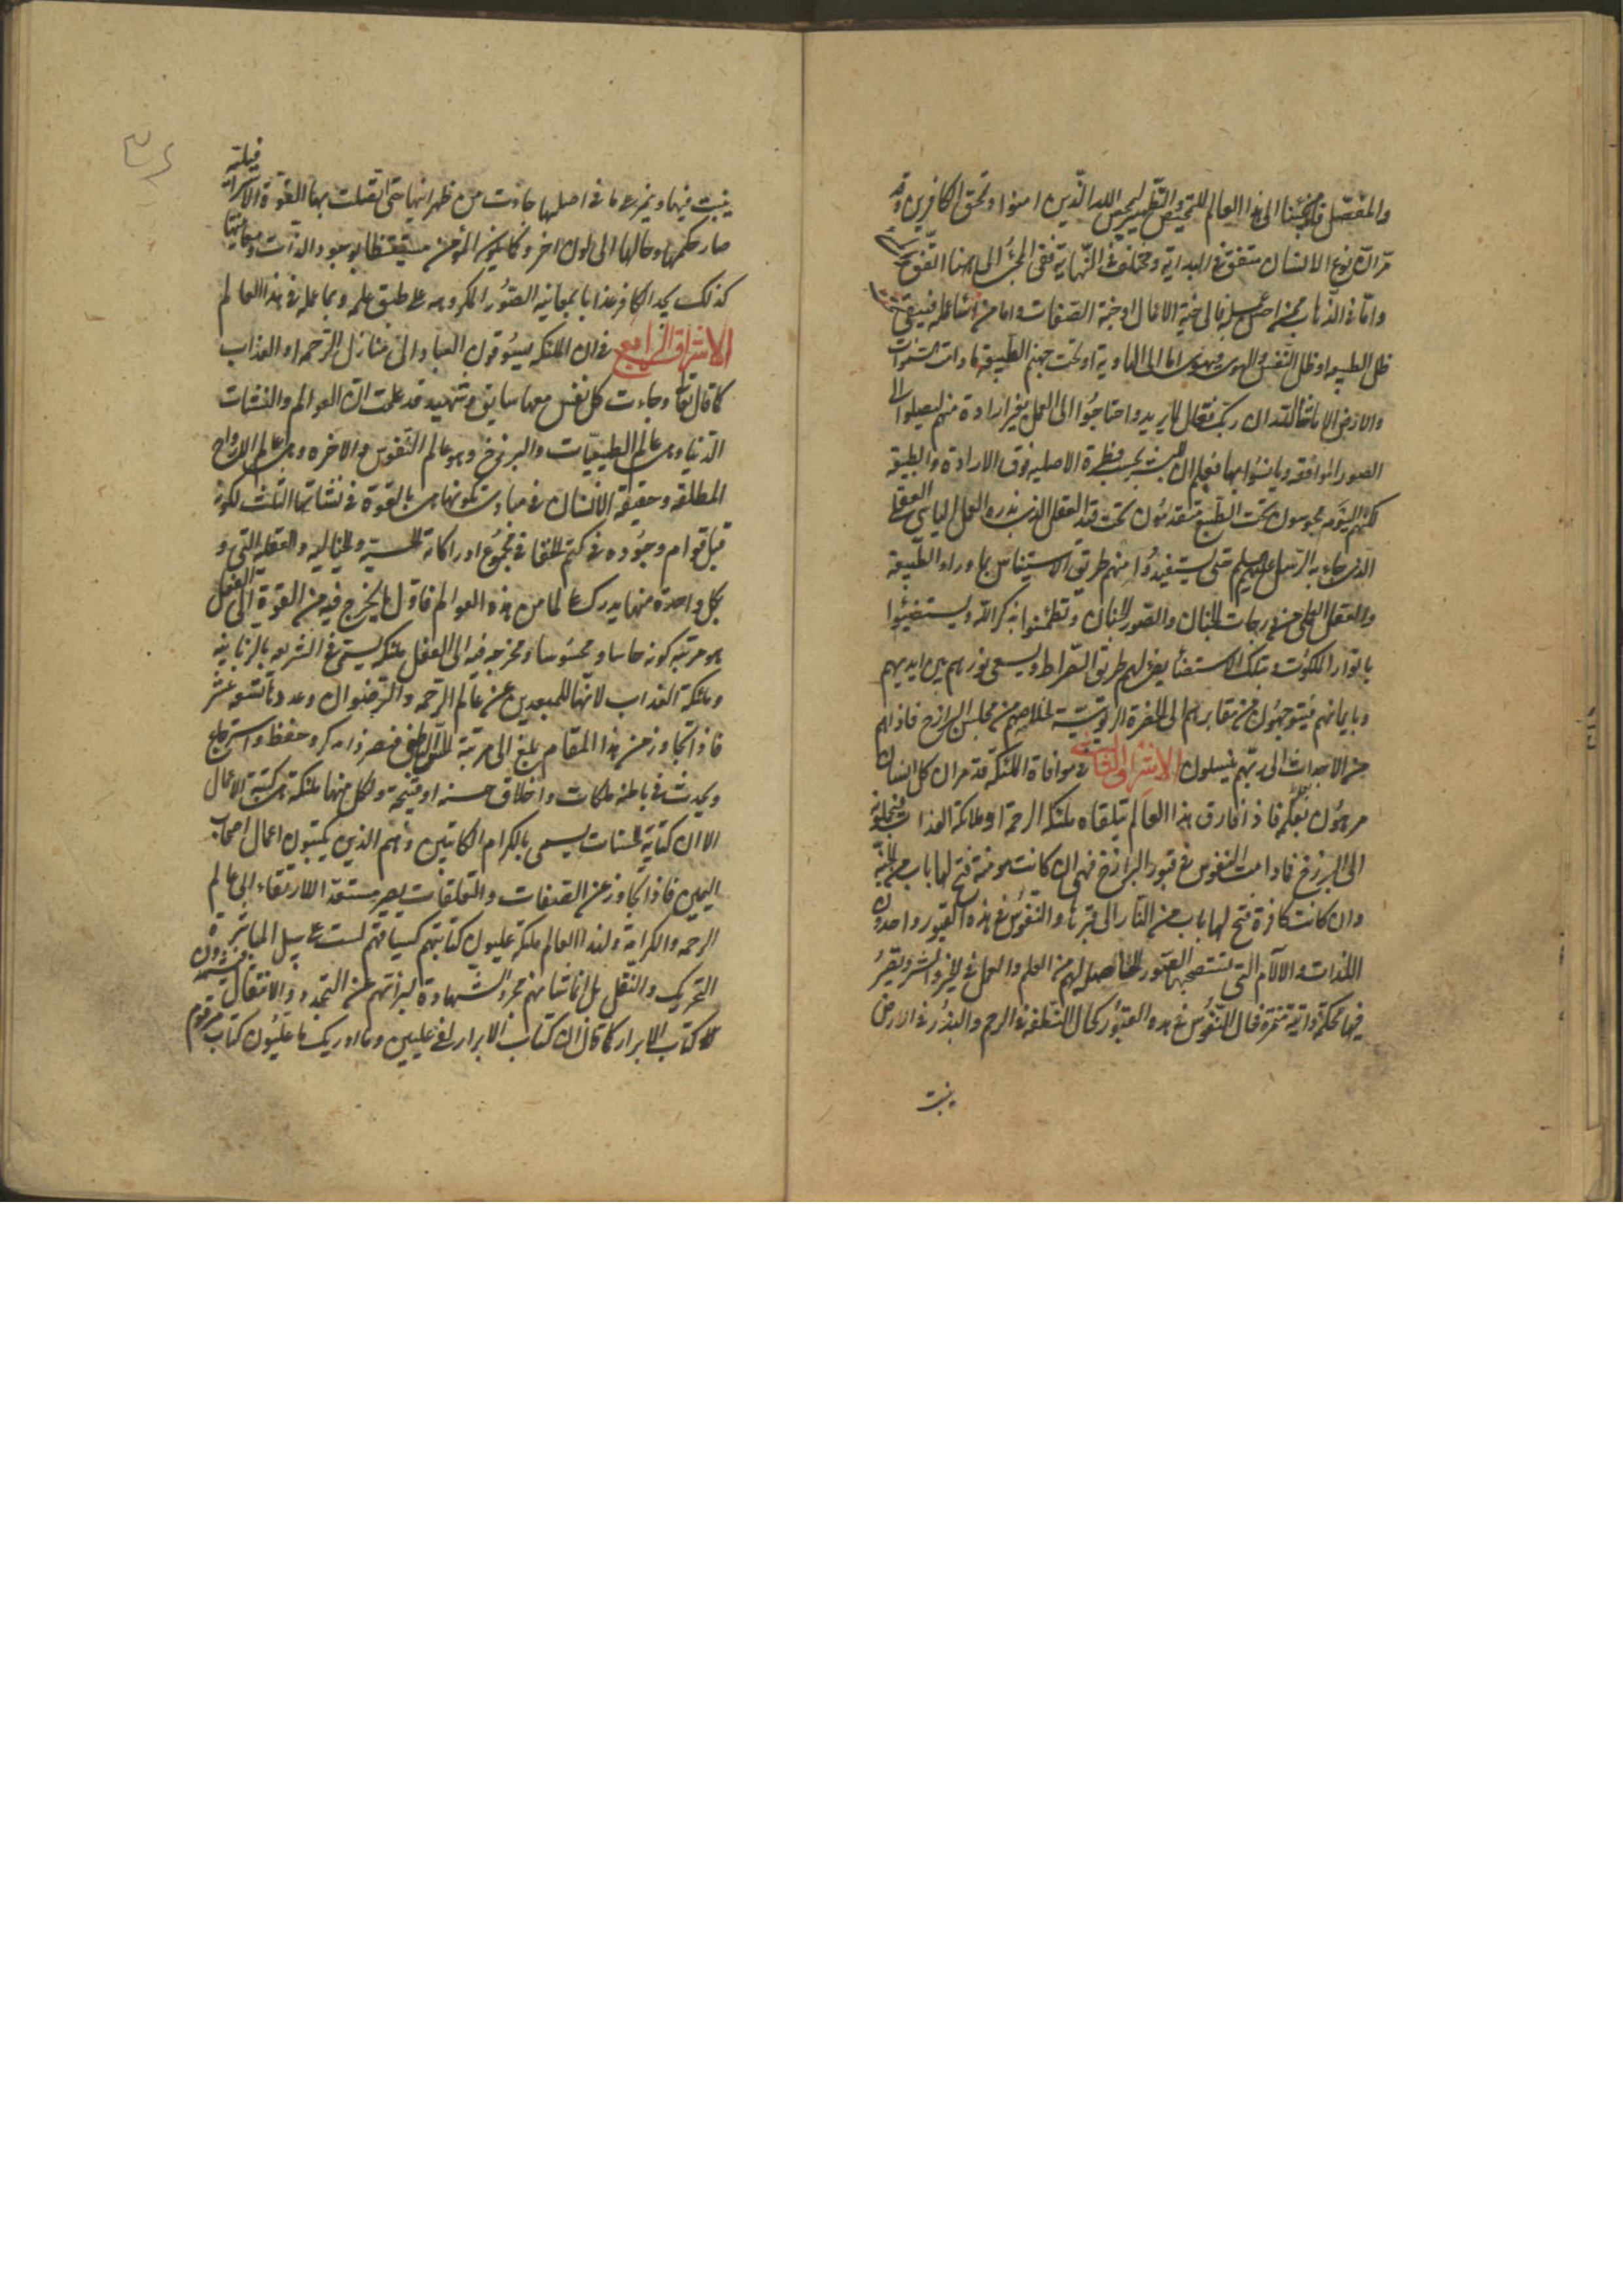 والمفصل فلمجيئنا الى هذا العالم للتمحيص والتطهير ليمحص الله الذين امنوا ويمحق الكافرين وقد
مر ان نوع الانسان متفق في البداية ومختلف في النهاية ففى المجئ الى هنا اتفق
واما في الذهاب فمن احسن عمله فالى جنة الافعال او جنة الصفات واما من اساء عمله فيبقى تحت
ظل الطبيعة او ظل النفس والهوى فيهوى اما الى الهاوية او تحت جهنم الطبيعة ما دامت السموات
والارض الا ما شاء الله ان ربك فعال لما يريد واحتاجوا الى العمل بغير ارادة منهم ليصلوا الى
الصور الموافقة ويانسوا بها فعلم ان بحسب فطرة الاصلية فوق الارادة والطبيعة
لكنهم اليوم محبوسون تحت الطبع متقدسون تحت قيد العقل الذى يدره العمل السياسى العقلى
الذى جاء به الرسل عليهم حتى يستفيدوا منهم طريق الاستيناس بما وراء الطبيعة
والعقل العلمى من درجات الجنان والصور الحسان وتطمئنوا بذكر الله ويستضيئوا
بانوار الملكوت وبتلك الاستضاءة يضئ لهم طريق الصراط ويسعى نورهم بين ايديهم
وبايمانهم فيتوجهون من مقابرهم الى الحضرة الربوبية لخلاصهم من مجلس البرازخ فاذا هم
من الاجداث الى ربهم ينسلون الاشراق الثالث في موافاة الملئكة قد مر ان كل انسان
مرهون بعمله فاذا فارق هذا العالم يتلقاه ملئكة الرحمة او ملائكة العذاب فيحملونه
الى البرزخ فما دامت النفوس في قبور البرازخ فهى ان كانت مومنة فتح لها باب من الجنة
وان كانت كافرة فتح لها باب من النار الى قبرها والنفوس في هذه القبور واجدون
اللذات والالآم التى تستصحبها الصور الحاصلة لهم من العلم والعمل في الخير والشر ويصير
فيها محكمة دائمة متمرة فحال النفوس في هذه القبور كحال النطفة في الرحم والبذور في الارض
ينبت
ينبت فيها ويثمر على ما في اصلها حادث من ظهر ابيها حتى اتصلت بها القوة الاسرافيلية
صار حكمها وحالها الى لون اخر وكما يكون المؤمن مستيقظا بوجود الذات ومعاينتها
كذلك يجد الكافر عذابا بمعاينة الصور المكروهة على طبق علمه وبما عمله في هذا العالم
الاشراق الرابع في ان الملئكة يسوقون العباد الى منازل الرحمة او العذاب
كما قال تعالى وجاءت كل نفس معها سائق وشهيد قد علمت ان العوالم والنشئات
الدنيا وهى عالم الطبيعيات والبرزخ وهو عالم النفوس والاخرة وهى عالم الارواح
المطلقة وحقيقة الانسان في مبادى تكونها هى بالقوة في نشاتها الثلث لكونه
قبل قوام وجوده في كتم الخفا في مجموع ادراكاته الحسية والخيالية والعقلية التى و
بكل واحدة منها يدرك عالما من هذه العوالم فاول ما يخرج فيه من القوة الى الفعل
هو مرتبة كونه حاسا ومحسوسا ومخرجه فيه الى الفعل ملئكة يسمى في الشريعة بالزبانية
وملئكة العذاب لانها للمبعدين عن عالم الرحمة والرضوان وعددها تسعة عشر
فاذا تجاوز عن هذا المقام بلغ الى مرتبة الباطن فصر ذا ذكر وحفظ واسترجاع
ويحدث في باطنه ملكات واخلاق حسنة او قبيحة ولكل منها ملئكة هم كتبة الاعمال
الا ان كتابة الحسنات يسمى بالكرام الكاتبين وهم الذين يكتبون اعمال اصحاب
اليمين فاذا تجاوز عن الصفات والتعلقات يصير مستعدا للارتقاء الى عالم
الرحمة والكرامة ولهذا العالم ملئكة عليون كتابتهم كسياقتهم ليست على سبيل المباشرة
التحريك والنقل بل انما شانهم مجرد الشهادة لبرائتهم عن التجدد والانتقال فيشهدون
كتاب الابرار كما قال ان كتاب الابرار لفى عليين وما ادريك ما عليون كتاب مرقوم